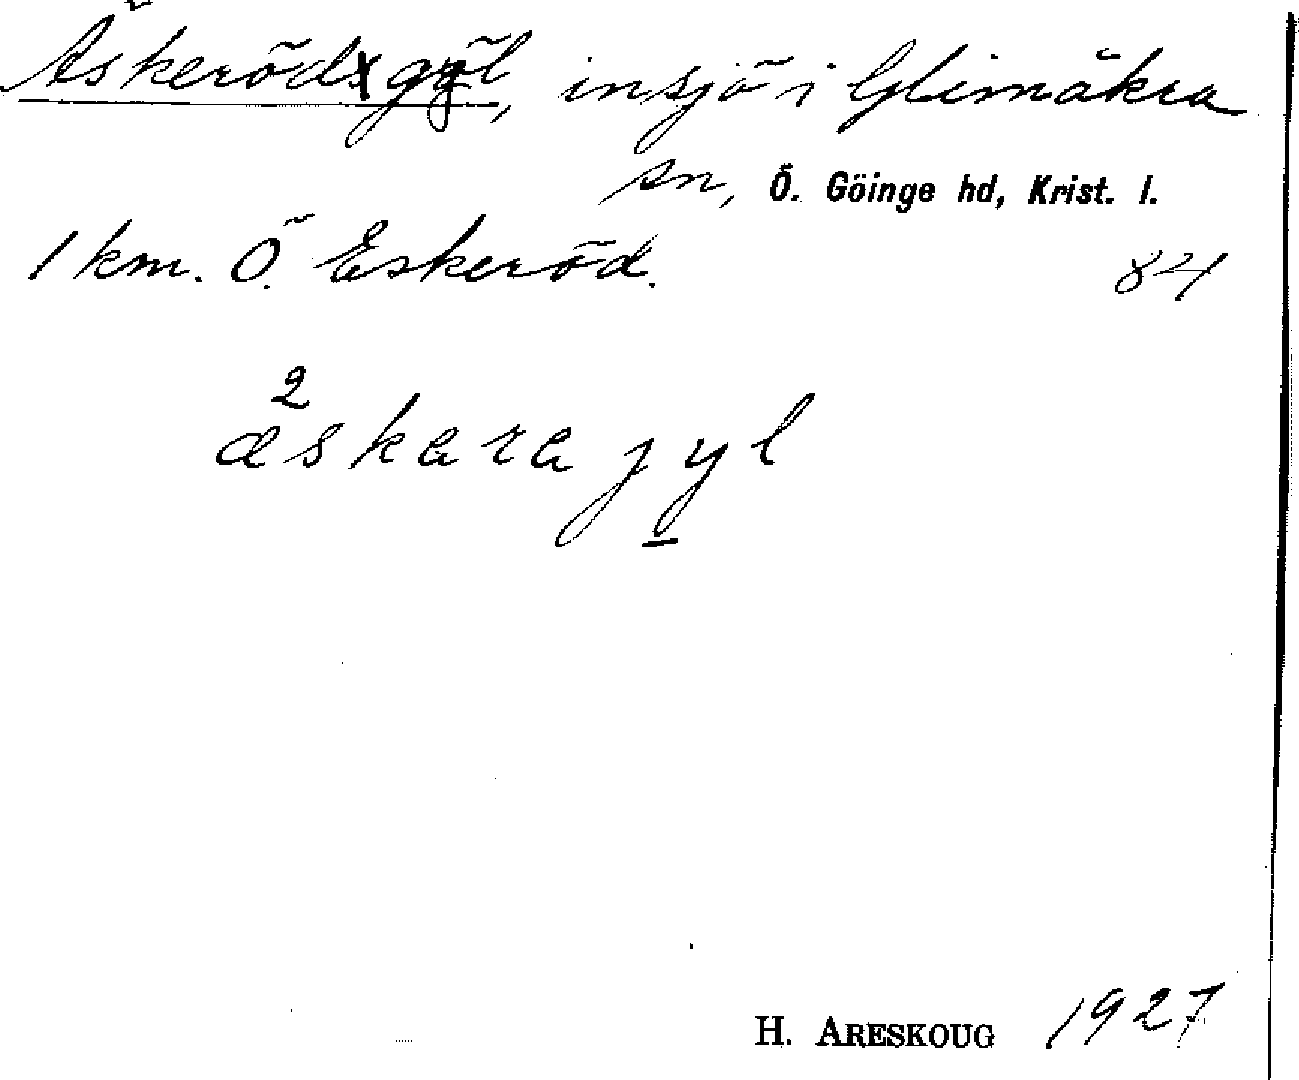 Äskerödsgöl, insjö i Glimåkra
sn, Ö. Göinge hd, Krist. l.
1 km. Ö. Eskeröd. 84
2
æskara jyl
H. ARESKOUG 1927